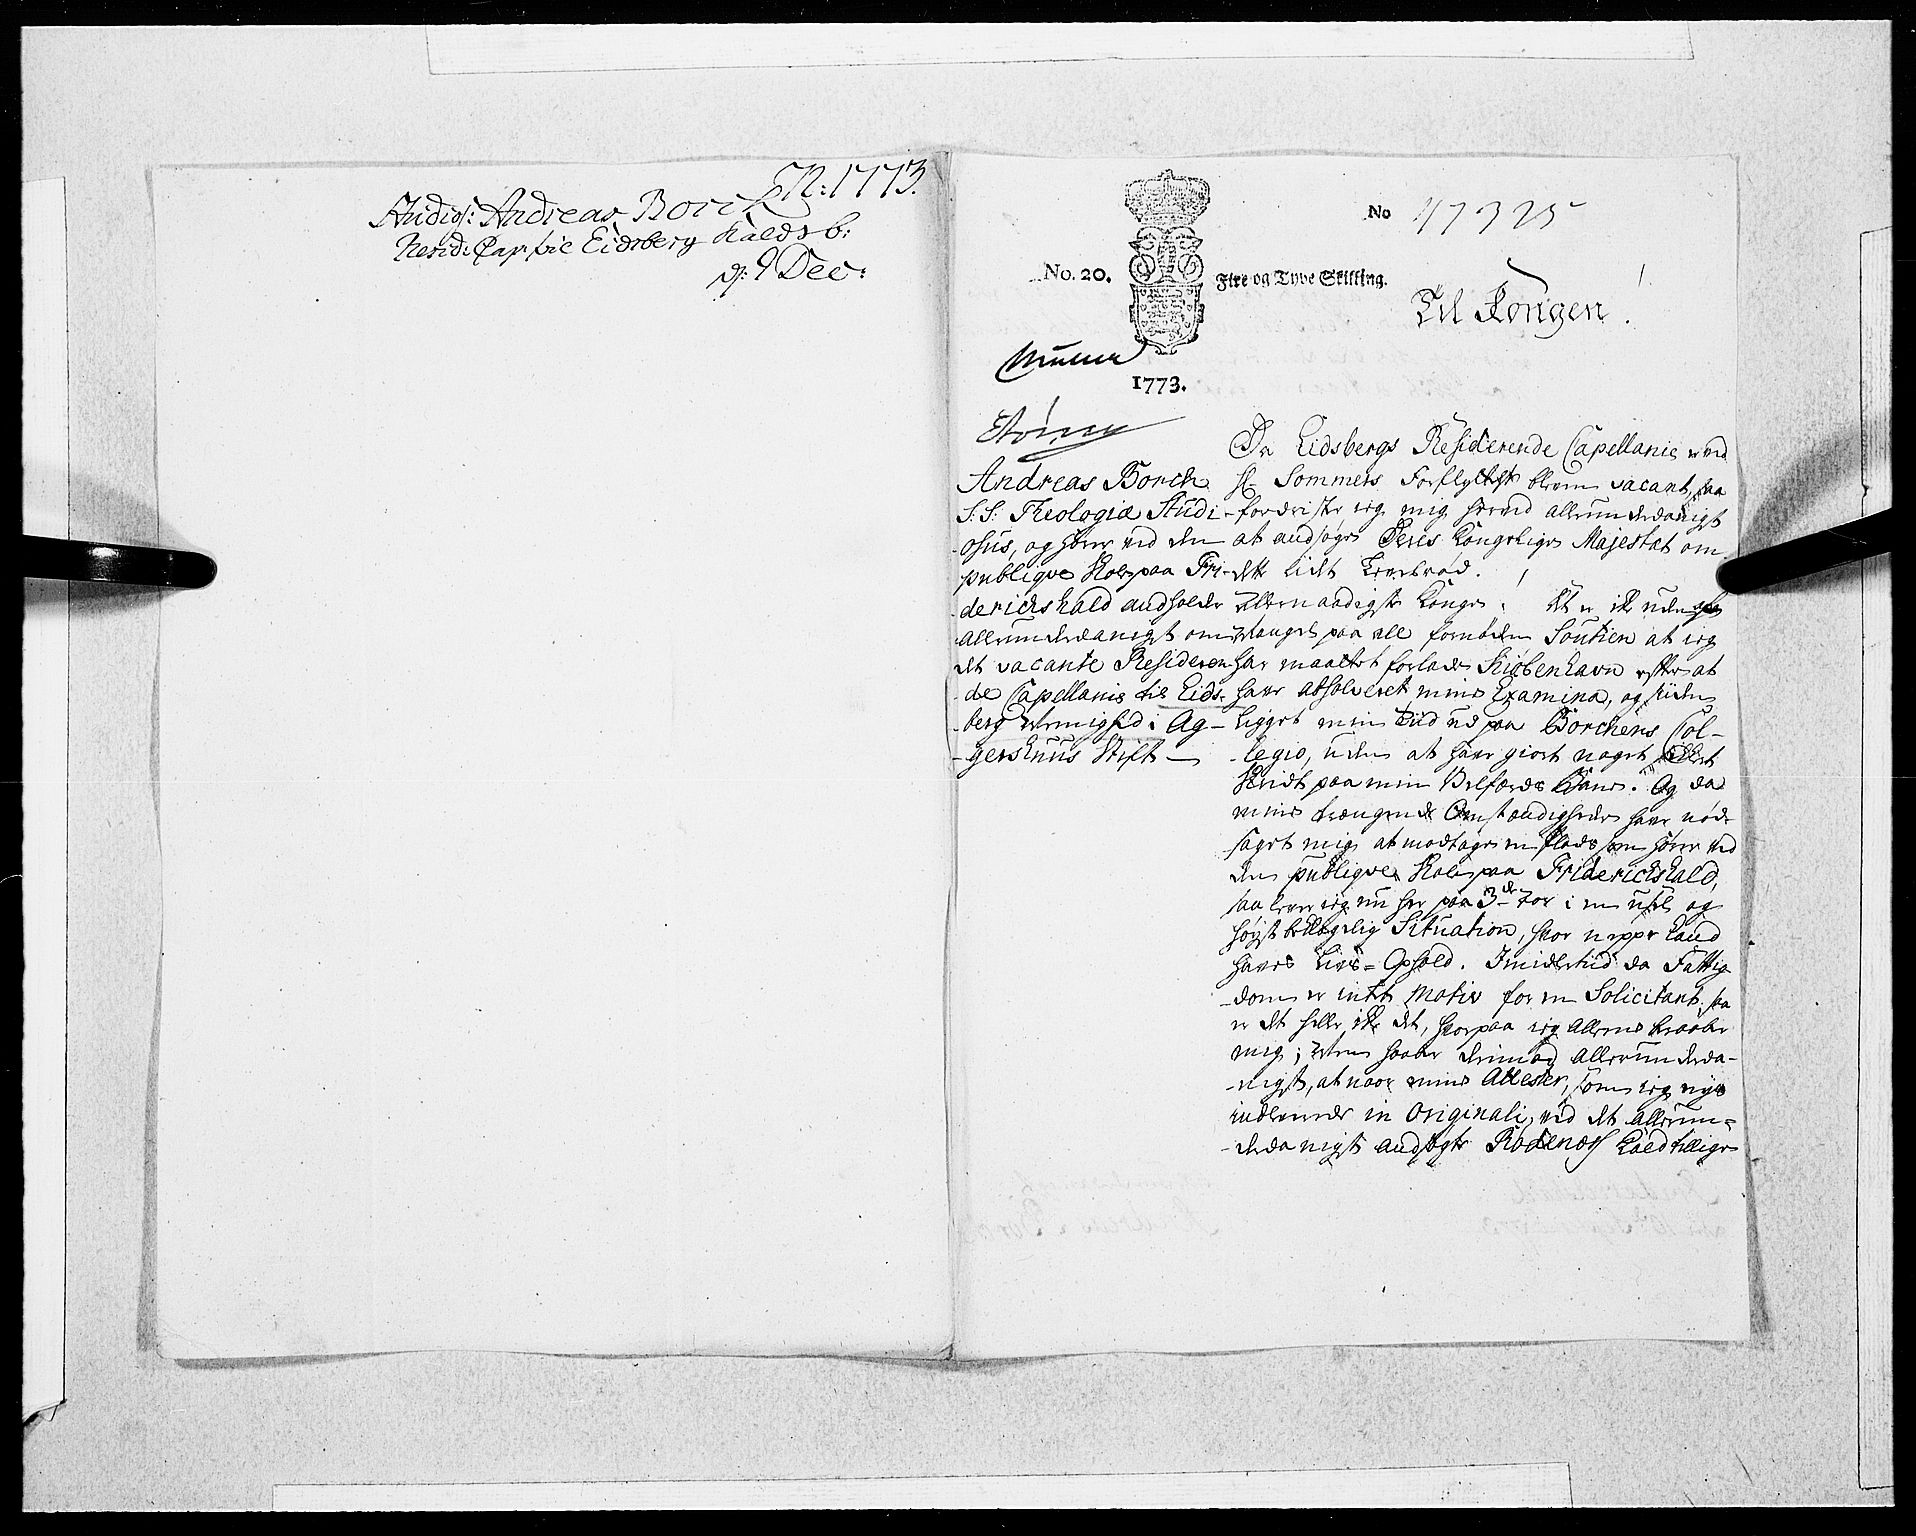 N: 1773.
Studios: Andreas Borch
Resid: Cap. til Eidsberg Kaldsb:
d: 9 Dec:
No 47325
No. 20. Fire og Tyve Skilling.
Til Kongen!
1773.
Andreas Borch
S: S: Theologiæ Studi-
osus, og Hører ved den
publique Skole paa Fri-
derichshald andholder
allerunderdanigst om
det vacante Resideren-
de Capellanie til Eids-
berg Menighed i Ag-
gershuus Stift
Da Eidsbergs Residerende Capellanie ved
Hr Sommers Forflyttelse bleven vacant, saa
fordrister ieg mig herved allerunderdanigst
at andsøge Deres Kongelige Majestæt om
dette lidet Levebrød.
Allernaadigste Konge! Det er ikke uden
Mangel paa all fornøden Soutien at ieg
har maattet forlade Kiøbenhavn efter at
have absolveret mine Examina, og siden
ligget min Tiid ud paa Borchens Col-
legio, uden at have giort noget
Skridt paa min Velfærds Bane. Og da
mine trængende Omstændigheder have nød-
saget mig at modtage en Plads som Hører ved
den publique Skole paa Friderichshald,
saa lever ieg nu her paa 3de Aar i en ussel og
høyst beklagelig Situation, hvor neppe kand
haves Livs-Ophold. Imidlertid da Fattig-
dom er intet Motiv for en Solicitant, saa
er det heller ikke det, hvorpaa ieg allene beraaber
mig; Men haaber derimod allerunderda-
nigst, at naar mine Attester, som ieg
indsender in Originali, ved det allerun-
derdanigst andsøgte Rødenæss Kald tillige